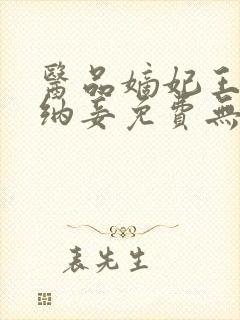 醫品嫡妃王
納妾免費無
表先生